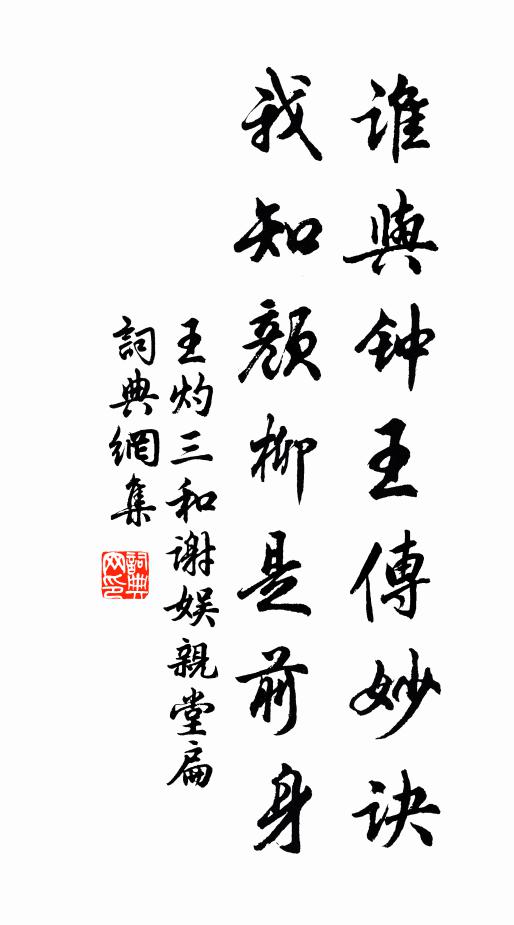 谁與钟王傳妙诀
我知顏柳是前身
王灼三和谢娱親堂扁
詞典網集
詞典
网印